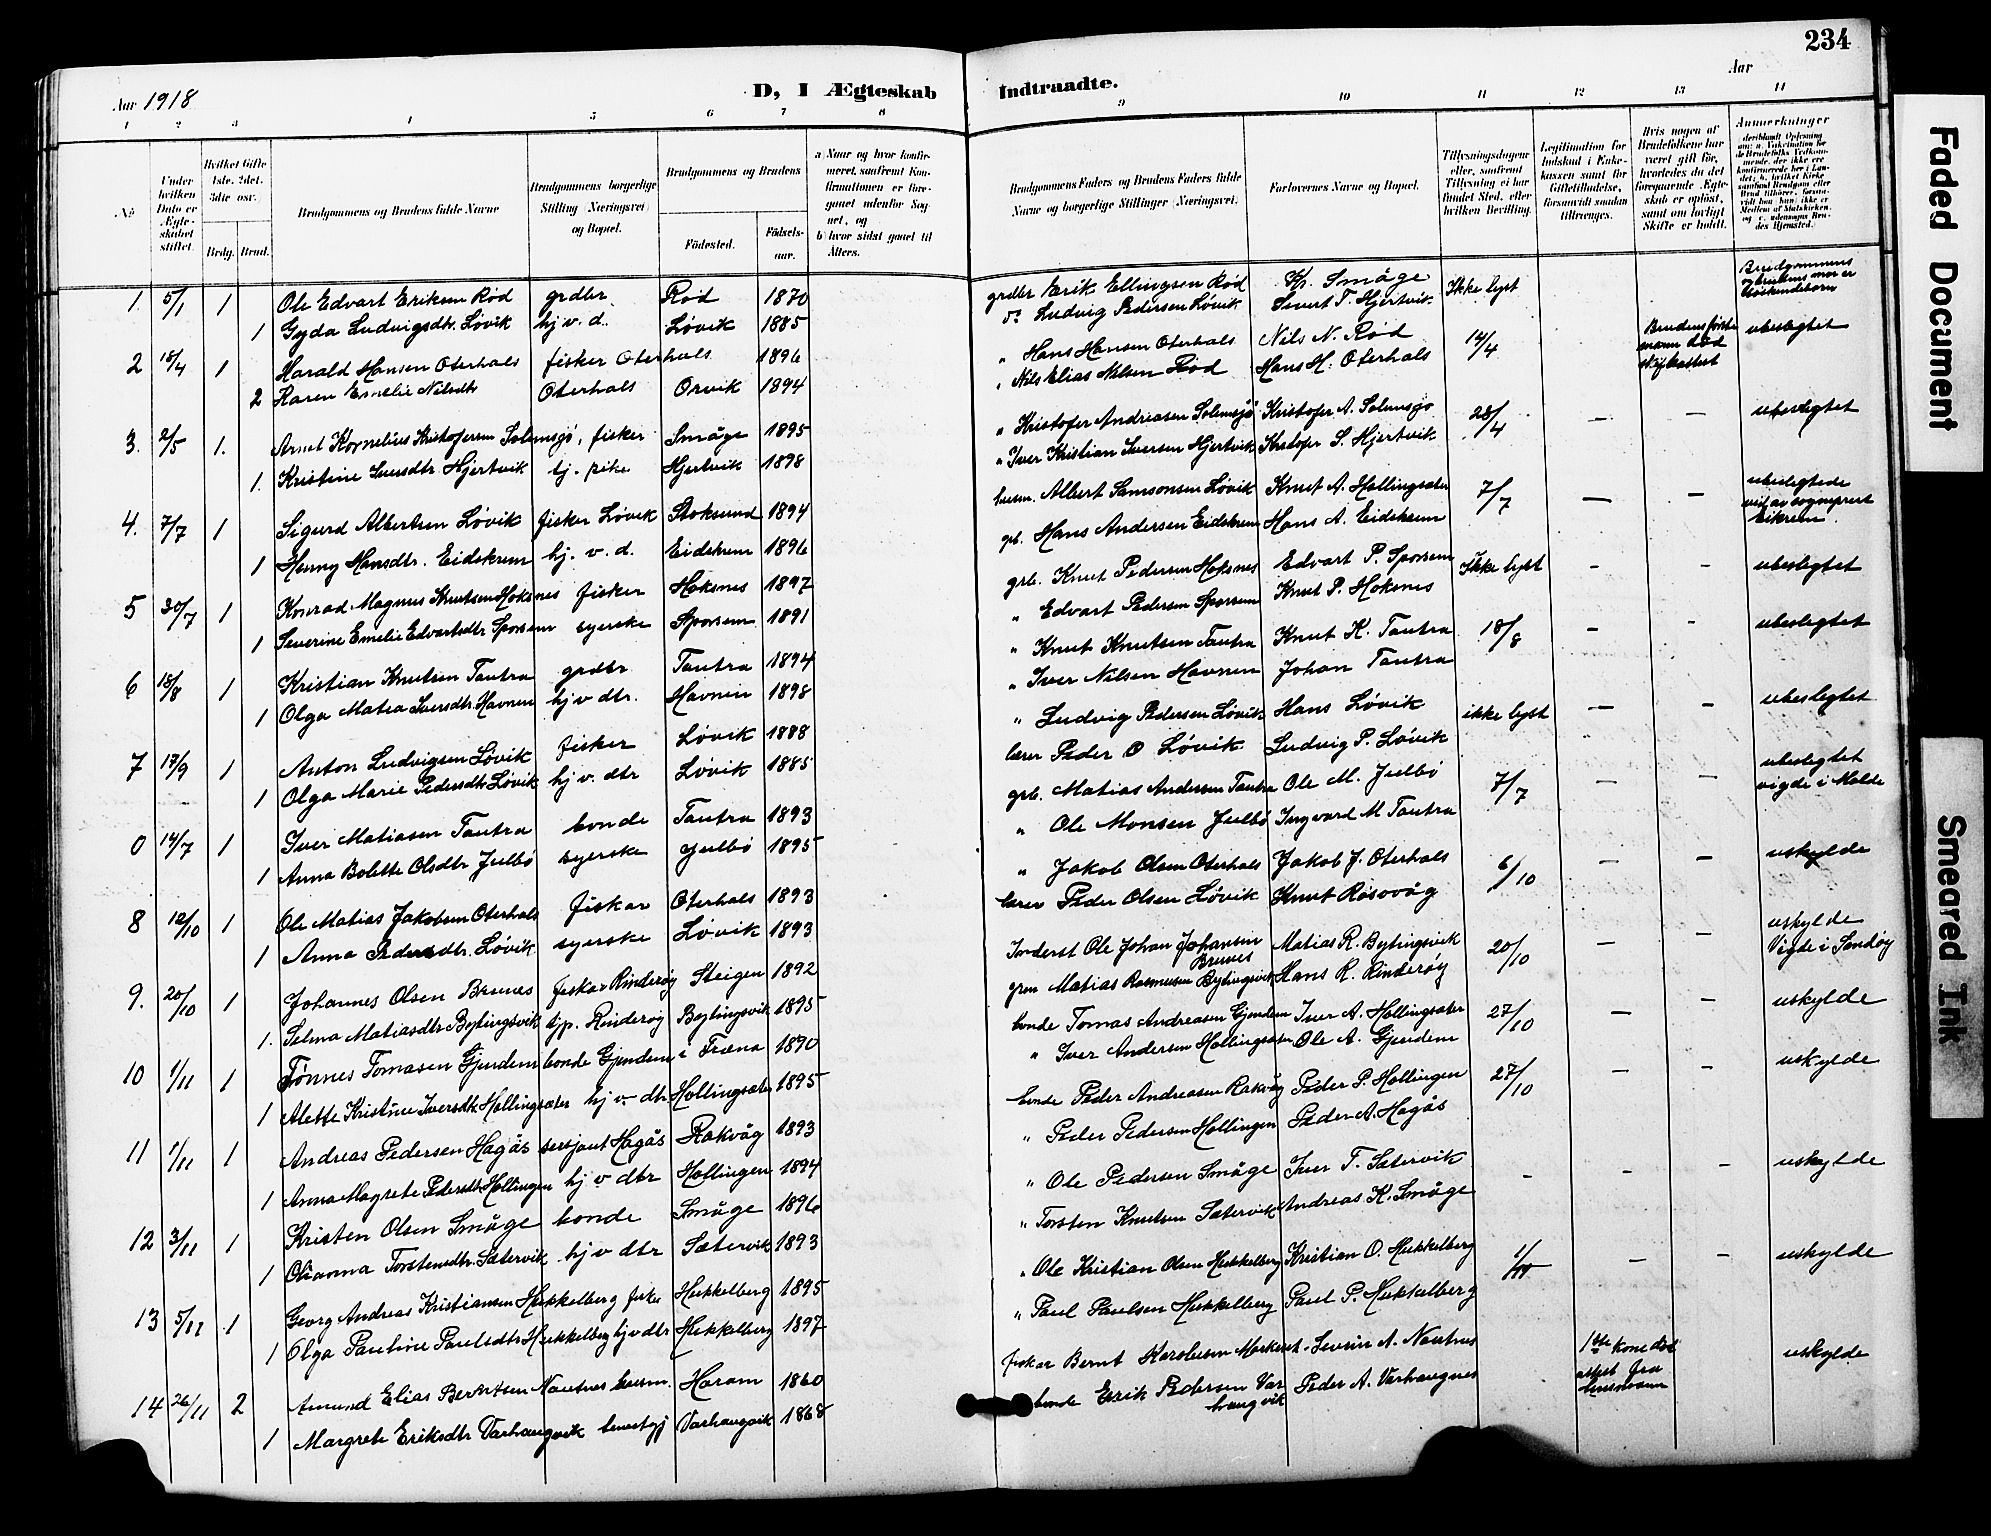 234
Aar 1918
D, I Ægteskab
Indtraadte.
Aar
1 2 3 4 5 6 7 8
9 10 11 12 13 14
No
Under hvilken Dato er Ægteskabet stiftet.
Hvilket Gifte 1ste, 2det, 3die osv.
Brdg. Brud.
Brudgommens og Brudens fulde Navne
Brudgommens borgerlige Stilling (Næringsvei) og Bopæl.
Brudgommens og Brudens
Födested.
Födselsaar.
a) Naar og hvor konfirmeret, samt om Konfirmationen er foregaaet udenfor Sognet, og
b) hvor sidst gaaet til Alters.
Brudgommens Faders og Brudens Faders fulde Navne og borgerlige Stillinger (Næringsvei)
Forlovernes Navne og Bopæl.
Tillysningsdagene eller, saafremt Tillysning ei har fundet Sted, efter hvilken Bevilling.
Legitimation for Indskud i Enkekassen samt for Giftetilladelse, forsaavidt saadan tiltrænges.
Hvis nogen af Brudefolkene har været gift för, hvorledes da det foregaaende Ægteskab er oplöst, samt om lovligt Skifte er holdt.
Anmerkninger
1. 5/1 1 Ole Edvart Eriksen Rød grdbr Rød 1870
grdbr Erik Ellingsen Rød K. Småge Ikke lyst
Brudgommens og brudens mor er søskendebarn
1 Gyda Ludvigsdtr. Løvik hj. v. d. Løvik 1885
do Ludvig Pedersen Løvik Sivert T. Hjertvik
2 18/4 1 Harald Hansen Oterhals fisker Oterhals 1896
" Hans Hansen Oterhals Nils N. Rød 14/4
Brudens første mann død skifteattest
ubeslegtet
2 Karen Emelie Nilsdtr Oterhals Orvik 1894
" Nils Elias Nilsen Rød Hans H. Oterhals
3. 2/5 1. Arnt Kornelius Kristofersen Solemsjø, fisker Småge 1895
" Kristofer Andreasen Solemsjø Kristofer A. Solemsjø 28/4 — — ubeslegtet
1. Kristine Iversdtr Hjertvik tj. pike Hjertvik 1898
" Iver Kristian Iversen Hjertvik Kristofer S. Hjertvik
4. 7/7 1 Sigurd Albertsen Løvik fisker Løvik Stoksund 1894
husm. Albert Samsonsen Løvik Knut A. Hollingsæter 7/7 — —
ubeslegtede
viet av sogneprest Eikrem.
1 Henny Hansdtr. Eidskrem hj. v. d. Eidskrem 1896
grb. Hans Andersen Eidskrem Hans A. Eidskrem
5 30/7 1 Konrad Magnus Knutsen Hoksnes fisker Hoksnes 1897
grb. Knut Pedersen Hoksnes Edvart P. Sporsem Ikke lyst - - ubeslegtet
1 Severine Emelie Edvartsdtr Sporsem syerske Sporsem 1891
" Edvart Pedersen Sporsem Knut P. Hoksnes
6 18/8 1 Kristian Knutsen Tautra grdbr Tautra 1894
" Knut Knutsen Tautra Knut K. Tautra 18/8 — - ubeslegtet
1 Olga Matea Iversdtr. Havnen hj v dtr. Havnen 1898
" Iver Nilsen Havnen Johan Tautra
7 17/9 1 Anton Ludvigsen Løvik fisker Løvik 1888
" Ludvig Pedersen Løvik Hans Løvik ikke lyst — — ubeslegtet
1 Olga Marie Pedersdtr Løvik hj v. dtr Løvik 1885
lærer Peder O Løvik Ludvig P. Løvik
0 14/7 1 Iver Matiasen Tautra bonde Tautra 1893
grb. Matias Andersen Tautra Ole M. Julbø 7/7 — —
ubeslegtet
vigde i Molde
1 Anna Bolette Olsdtr. Julbø syerske Julbø 1895
" Ole Monsen Julbø Ingvard M Tautra
8 12/10 1 Ole Matias Jakobsen Oterhals fiskar Oterhals 1893
" Jakob Olsen Oterhals Jakob J. Oterhals 6/10 — — uskylde
1 Anna Pedersdtr. Løvik syerske Løvik 1893
lærer Peder Olsen Løvik Knut Røsovåg
9. 20/10 1 Johannes Olsen Brunes fiskar Rinderøy Steigen 1892
Inderst Ole Johan Johansen Brunes Matias R. Bytingsvik 20/10 — —
uskylde
Vigde i Sandøy
1. Selma Matiasdtr Bytingsvik tjp. Rinderøy Bytingsvik 1895
grm Matias Rasmussen Bytingsvik Hans R. Rinderøy
10 1/11 1 Tønnes Tomasen Gjendem bonde Gjendem i Træna 1890
bonde Tomas Andreasen Gjendem Iver A. Hollingsæter 27/10 — — uskylde
1 Alette Kristine Iversdtr Hollingsæter hj v. dtr Hollingsæter 1895
" Iver Andersen Hollingsæter Ole A. Gjendem
11 1/11 1 Andreas Pedersen Hagås sersjant Hagås Rakvåg 1893
bonde Peder Andreasen Rakvåg Peder P. Hollingen 27/10 — - uskylde
1 Anna Magrete Pedersdtr Hollingen hj v dtr Hollingen 1894
" Peder Pedersen Hollingen Peder A. Hagås
12 3/11 1 Kristen Olsen Småge bonde Småge 1896
" Ole Pedersen Småge Iver T. Sætervik - - - uskylde
1 Torstensdtr. Sætervik hj v dtr Sætervik 1893
" Torsten Knutsen Sætervik Andreas K. Småge
13 5/11 1 Georg Andreas Kristiansen Hukkelberg fisker Hukkelberg 1895
" Ole Kristian Olsen Hukkelberg Kristian O. Hukkelberg 1/11 — - uskylde
1 Olga Pauline Paulsdtr Hukkelberg hj v dtr Hukkelberg 1897
" Paul Paulsen Hukkelberg Paul P. Hukkelberg
14 26/11 2 Amund Elias Berntsen Nautnes husm. Haram 1860
fiskar Bernt Karolusen Severin A. Nautnes
1ste kone død attest fra lensmann
uskylde
1 Margrete Eriksdtr Varhaugvik Varhaugvik 1868
bonde Erik Pedersen Varhaugvik Peder A. Varhaugnes
Faded Document
Smeared Ink